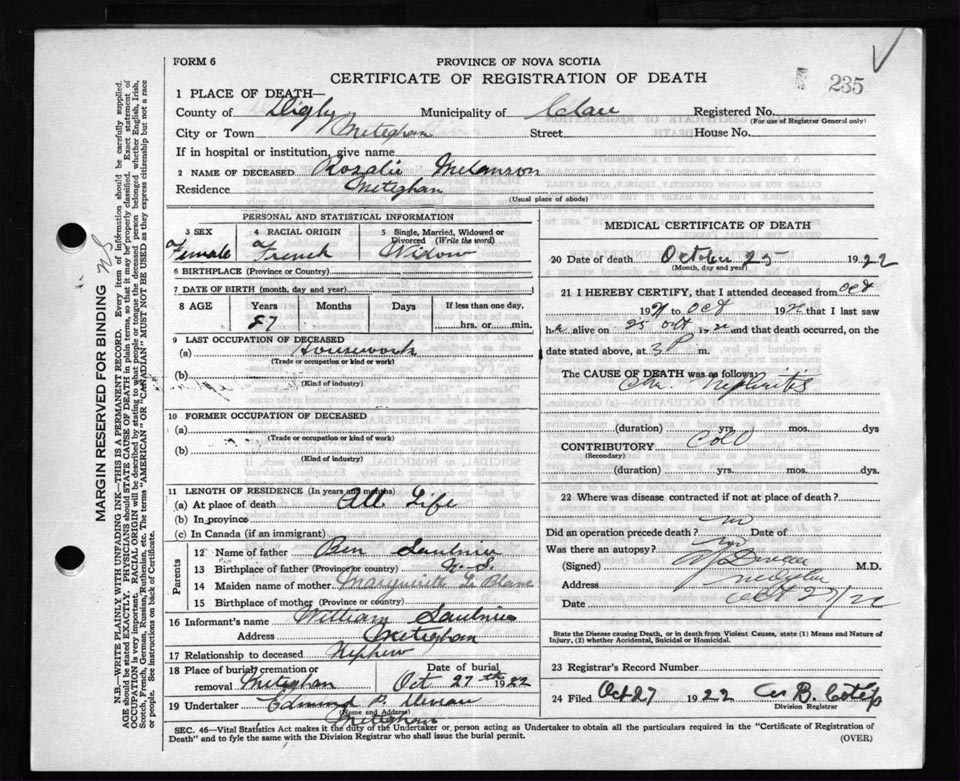 FORM 6
PROVINCE OF NOVA SCOTIA
CERTIFICATE OF REGISTRATION OF DEATH
235
1 PLACE OF DEATH—
County of Digby Municipality of Clare Registered No.
(For use of Registrar General only)
City or Town Meteghan Street House No.
If in hospital or institution, give name
2 NAME OF DECEASED Rozalie Melanson
Residence Meteghan
(Usual place of abode)
PERSONAL AND STATISTICAL INFORMATION
3 SEX 4 RACIAL ORIGIN 5 Single, Married, Widowed or Divorced (Write the word)
Female French Widow
6 BIRTHPLACE (Province or Country)
7 DATE OF BIRTH (month, day and year)
8 AGE Years Months Days If less than one day,
87 hrs. or min.
9 LAST OCCUPATION OF DECEASED
(a) Housework
(Trade or occupation or kind or work)
(b)
(Kind of industry)
10 FORMER OCCUPATION OF DECEASED
(a)
(Trade or occupation or kind of work)
(b)
(Kind of industry)
11 LENGTH OF RESIDENCE (In years and months)
(a) At place of death All Life
(b) In province
(c) In Canada (if an immigrant)
Parents
12 Name of father Ben Saulnier
13 Birthplace of father (Province or country) N.S.
14 Maiden name of mother Marguirite Le Blanc
15 Birthplace of mother (Province or country)
16 Informant's name William Saulnier
Address Meteghan
17 Relationship to deceased Nephew
18 Place of burial, cremation or removal Meteghan Date of burial Oct 27th 1922
19 Undertaker Edmund P.
(Name and Address)
Meteghan
MEDICAL CERTIFICATE OF DEATH
20 Date of death October 25 1922
(Month, day and year)
21 I HEREBY CERTIFY, that I attended deceased from Oct
19 to Oct 19 that I last saw
h alive on 25 Oct 19 and that death occurred, on the
date stated above, at 3 P m.
The CAUSE OF DEATH was as follows:
Chr. Nephritis
(duration) yrs. mos. dys
CONTRIBUTORY Cold
(Secondary)
(duration) yrs. mos. dys.
22 Where was disease contracted if not at place of death?
Did an operation precede death? no Date of
Was there an autopsy? no
(Signed) M.D.
Address
Date Oct 27/22
State the Disease causing Death, or in death from Violent Causes, state (1) Means and Nature of
Injury, (2) whether Accidental, Suicidal or Homicidal.
23 Registrar's Record Number
24 Filed Oct 27 1922 B.
Division Registrar
SEC. 46—Vital Statistics Act makes it the duty of the Undertaker or person acting as Undertaker to obtain all the particulars required in the "Certificate of Registration of
Death" and to fyle the same with the Division Registrar who shall issue the burial permit.
(OVER)
MARGIN RESERVED FOR BINDING NS
N.B.—WRITE PLAINLY WITH UNFADING INK—THIS IS A PERMANENT RECORD. Every item of information should be carefully supplied.
AGE should be stated EXACTLY. PHYSICIANS should STATE CAUSE OF DEATH in plain terms, so that it may be properly classified. Exact statement of
OCCUPATION is very important. RACIAL ORIGIN will be described by stating to what people or tongue the deceased person belonged whether English, Irish,
Scotch, French, German, Russian, Ruthenian, etc. The terms "AMERICAN" OR "CANADIAN" MUST NOT BE USED as they express citizenship but not a race
or people. See instructions on back of Certificate.